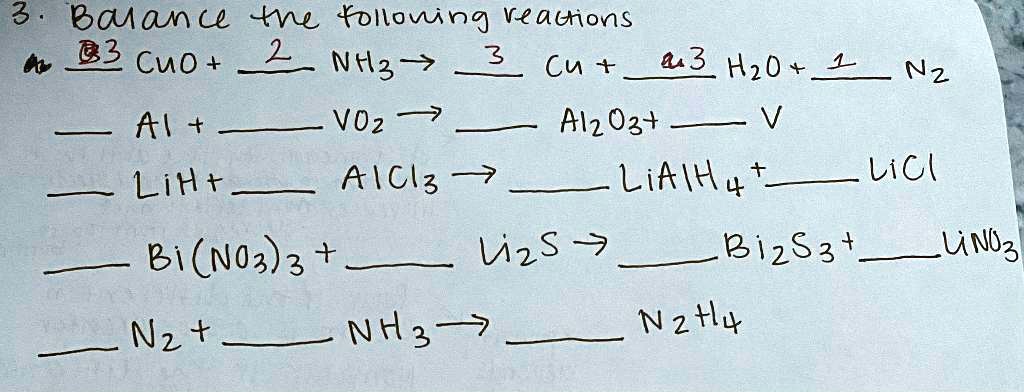 3. Balance the following reactions
3 CuO + 2 NH3 → 3 Cu + 3 H2O + 1 N2
___ Al + ___ VO2 → ___ Al2O3 + ___ V
___ LiH + ___ AlCl3 → ___ LiAlH4 + ___ LiCl
___ Bi(NO3)3 + ___ Li2S → ___ Bi2S3 + ___ LiNO3
___ N2 + ___ NH3 → ___ N2H4